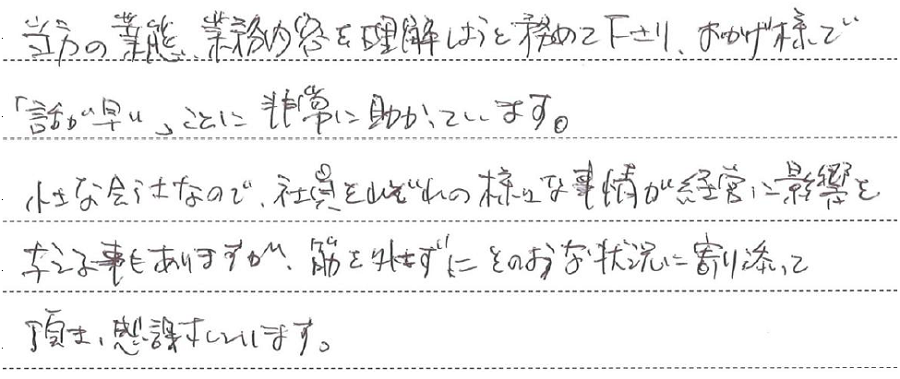 当方の業態、業務内容を理解しようと務めて下さり、おかげ様で
「話が早い」ことに非常に助かっています。
小さな会社なので、社員それぞれの様々な事情が経営に影響を
与える事もありますが、筋を外さずにそのような状況に寄り添って
頂き、感謝しています。